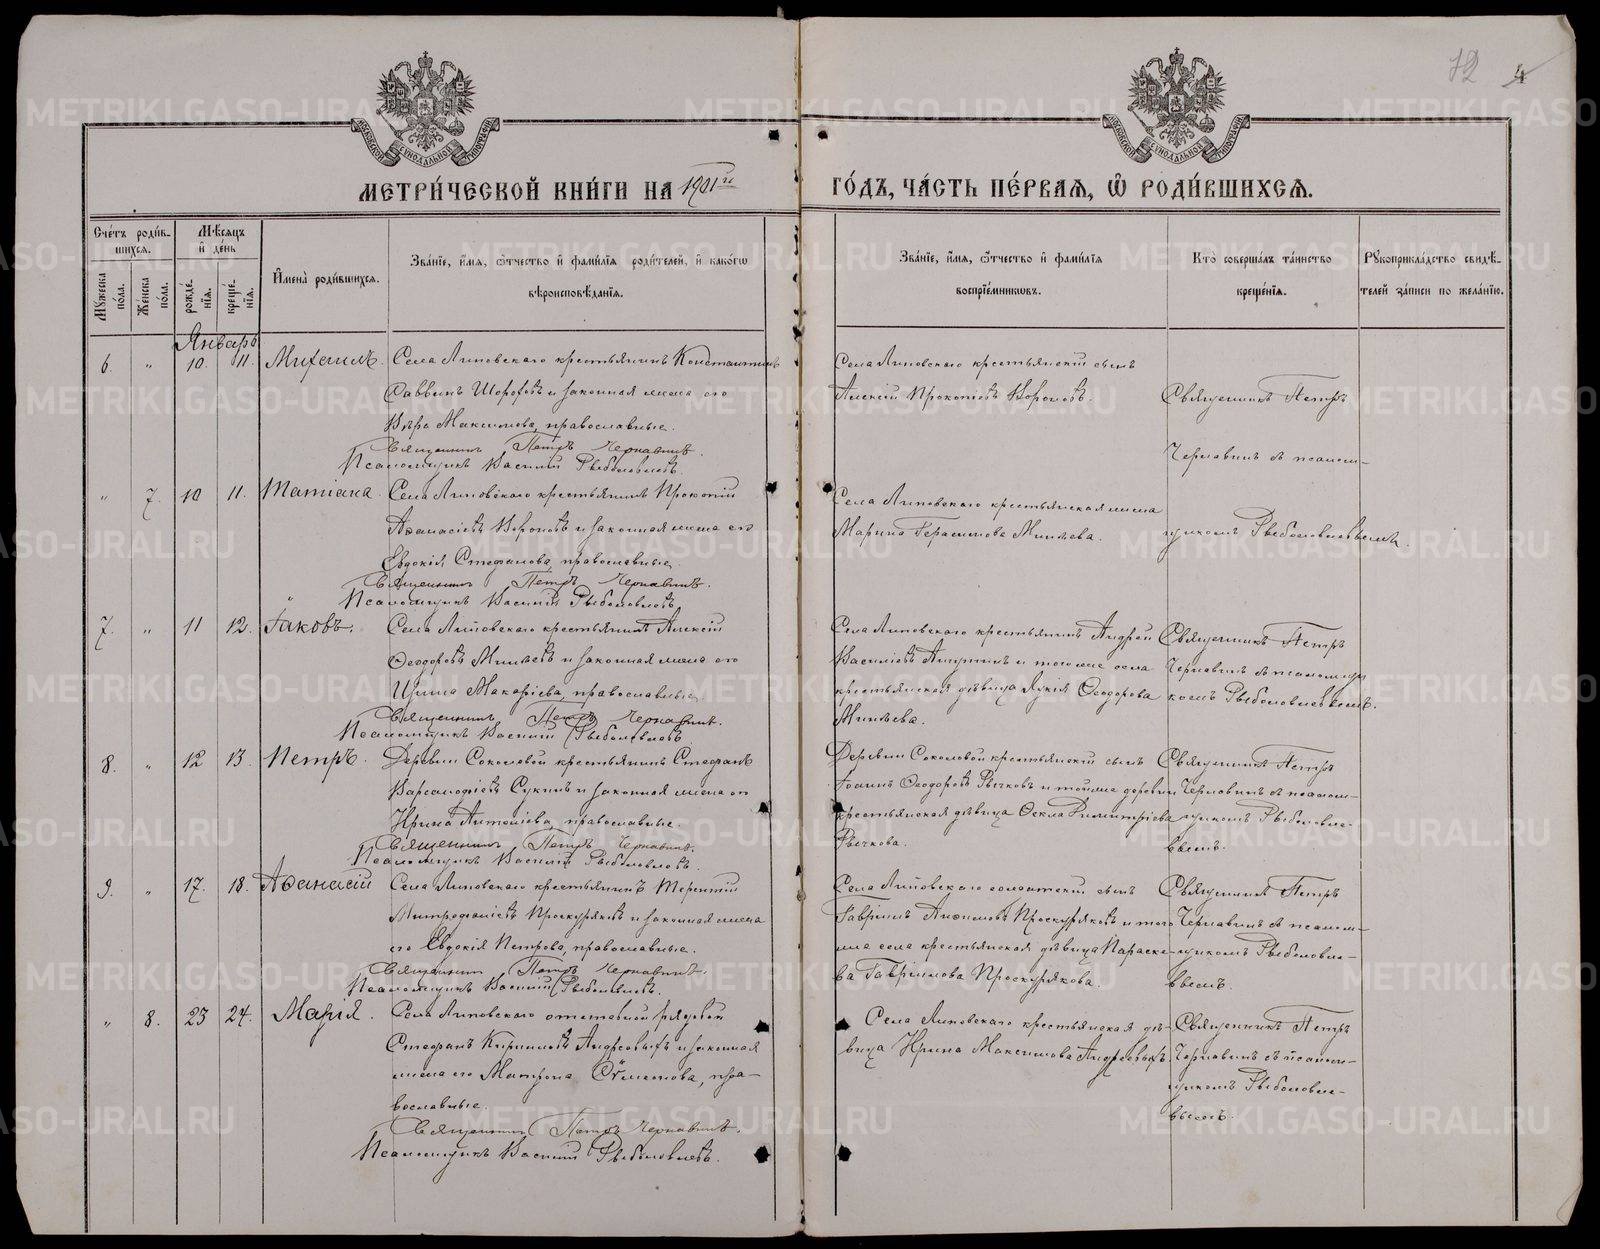 12 4
МОСКОВСКОЙ СѴНОДАЛЬНОЙ ТИПОГРАФІИ
МОСКОВСКОЙ СѴНОДАЛЬНОЙ ТИПОГРАФІИ
МЕТРИ́ЧЕСКОЙ КНИ́ГИ НА 1901й
ГО́ДЪ, ЧА́СТЬ ПЕ́РВАЯ, Ѡ҆ РОДИ́ВШИХСЯ.
Сче́тъ роди́в-
шихся.
Мꙋ́жеска по́ла.
Же́нска по́ла.
Мѣ́сяцъ и҆ де́нь
рожде́-нїѧ.
креще́-нїѧ.
И҆мена̀ роди́вшихся.
Зва́нїе, и҆́мѧ, ѻ҆́тчество и҆ фами́лїѧ роди́телей, и҆ како́гѡ
вѣроисповѣ́данїѧ.
Зва́нїе, и҆́мѧ, ѻ҆́тчество и҆ фами́лїѧ
воспрїе́мникѡвъ.
Кто̀ соверша́лъ та́инство
креще́нїѧ.
Рꙋкоприкла́дство свидѣ́-
телей за́писи по жела́нїю.
Январь
6. " 10. 11. Михаилъ. Села Липовскаго крестьянинъ Константинъ
Саввинъ Шороховъ и законная жена его
Вѣра Максимова, православные.
Священникъ Петръ Чернавинъ.
Псаломщикъ Василій Рыболовлевъ.
Села Липовскаго крестьянскій сынъ
Алексій Прокопіевъ Вороновъ.
Священникъ Петръ
Чернавинъ съ псалом-
щикомъ Рыболовлевымъ.
" 7. 10 11. Татіана. Села Липовскаго крестьянинъ Прокопій
Аѳанасіевъ Вороновъ и законная жена его
Евдокія Стефанова, православные.
Священникъ Петръ Чернавинъ.
Псаломщикъ Василій Рыболовлевъ
Села Липовскаго крестьянская жена
Марина Герасимова Миняева.
7. " 11 12. Іаковъ. Села Липовскаго крестьянинъ Алексій
Ѳеодоровъ Миняевъ и законная жена его
Ирина Макаріева, православные.
Священникъ Петръ Чернавинъ.
Псаломщикъ Василій Рыболовлевъ
Села Липовскаго крестьянинъ Андрей
Василіевъ и того же села
крестьянская дѣвица Лукія Ѳеодорова
Миняева.
Священникъ Петръ
Чернавинъ съ псаломщи-
комъ Рыболовлевымъ.
8. " 12 13. Петръ. Деревни Соколовой крестьянинъ Стефанъ
Варсанофіевъ Сукинъ и законная жена его
Ирина Антоніева, православные.
Священникъ Петръ Чернавинъ.
Псаломщикъ Василій Рыболовлевъ.
Деревни Соколовой крестьянскій сынъ
Іоаннъ Ѳеодоровъ Рычковъ и тойже деревни
крестьянская дѣвица Ѳекла Димитріева
Рычкова.
Священникъ Петръ
Чернавинъ съ псалом-
щикомъ Рыболовле-
вымъ.
9. " 17. 18. Аѳанасій Села Липовскаго крестьянинъ Терентій
Митрофановъ Проскуряковъ и законная жена
его Евдокія Петрова, православные.
Священникъ Петръ Чернавинъ.
Псаломщикъ Василій Рыболовлевъ.
Села Липовскаго солдатскій сынъ
Гавріилъ Проскуряковъ и того
же села крестьянская дѣвица Параске-
ва Гавріилова Проскурякова.
Священникъ Петръ
Чернавинъ съ псалом-
щикомъ Рыболовле-
вымъ.
" 8. 23 24. Марія. Села Липовскаго отставной рядовой
Стефанъ Кирилловъ Андреевыхъ и законная
жена его Матрона Сѵмеонова, пра-
вославные.
Священникъ Петръ Чернавинъ.
Псаломщикъ Василій Рыболовлевъ.
Села Липовскаго крестьянская дѣ-
вица Ирина Максимова Андреевыхъ.
Священникъ Петръ
Чернавинъ съ псалом-
щикомъ Рыболовле-
вымъ.
METRIKI.GASO-URAL.RU